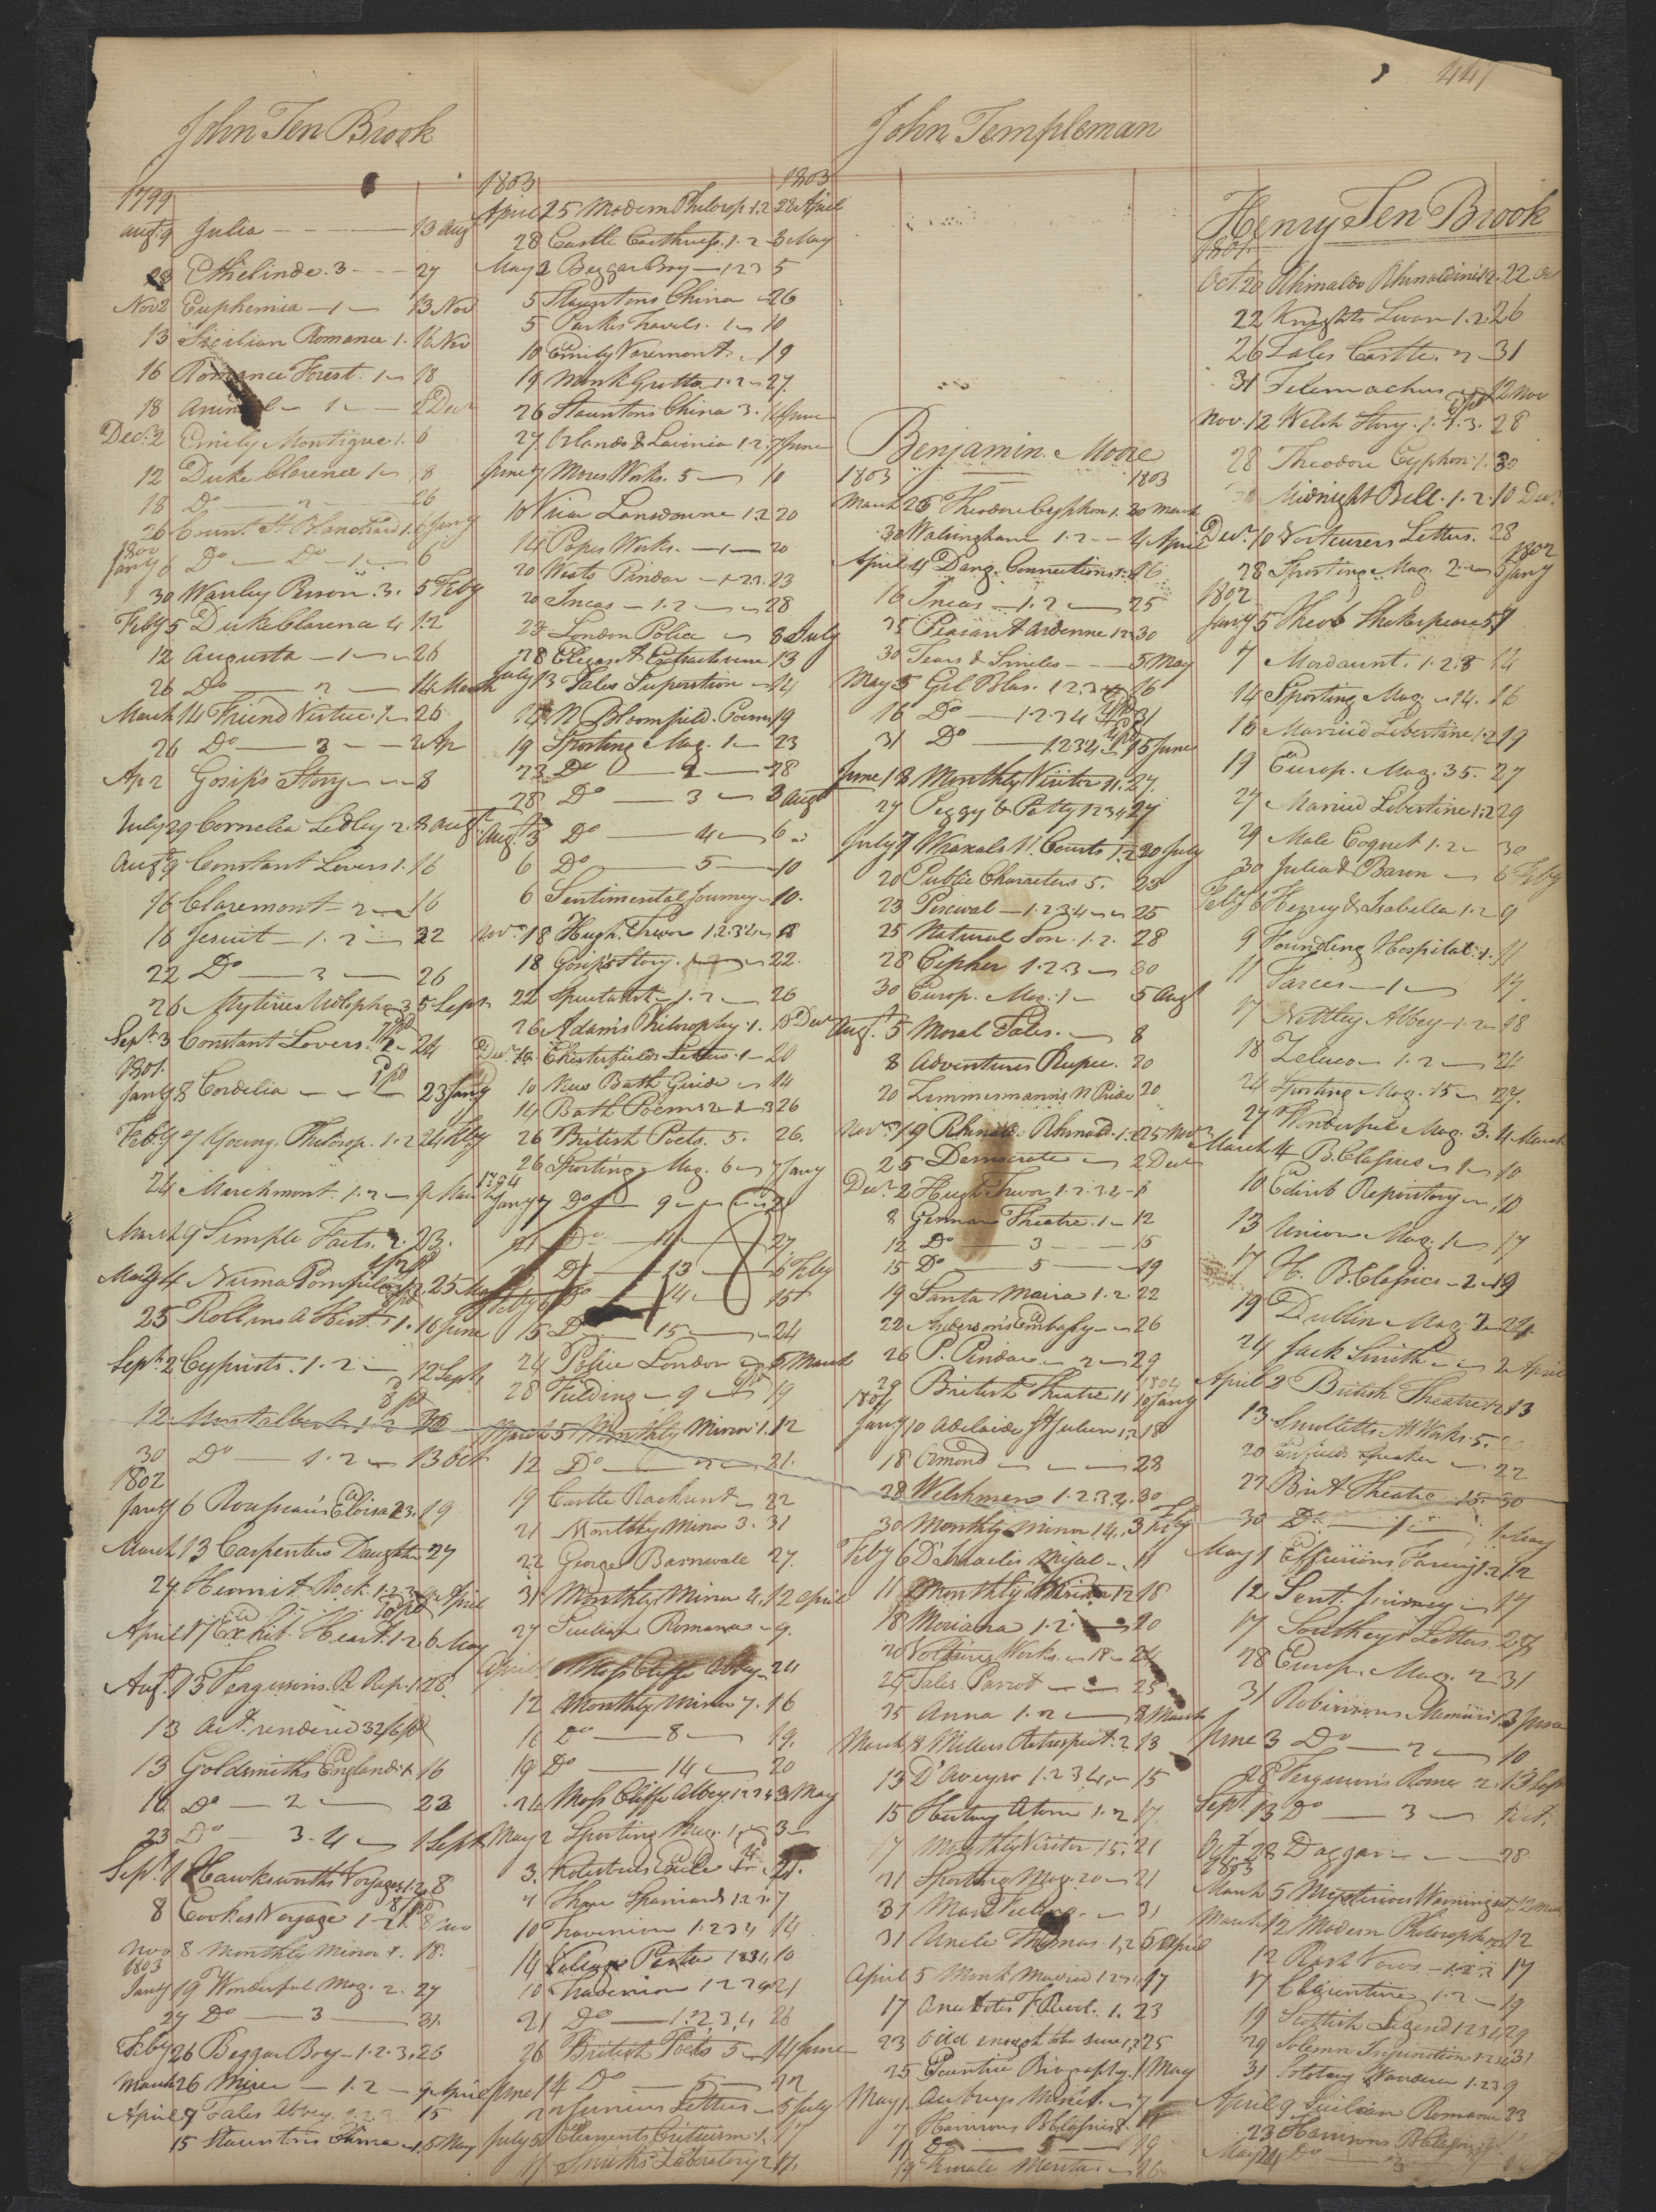 441
John Ten Brook
1799
Augt 9 Julia 13 Aug
Ethelinde. 3 27
Nov 2 Euphemia 1 13 Nov
13 Sicilian Romance 1. 16 Nov
16 Romance Forest. 1 18
18 1 2 Decr
Decr 2 Emily Montigue 1. 6
12 Duke Clarence 1 18
18 Do 2 26
26 Count St Blanchard 1. 6 Jany
1800
Jany 6 Do Do 1 6
30 Wanley Penson. 3. 5 Feby
Feby 5 Duke Clarence 4 12
12 Augusta 1 26
26 Do 2 14 March
March 14 Friend Virtue. 1 26
26 Do 3 2 Ap
Ap 2 Gosip's Story 8
July 29 Cornelia Sedley 2. 8 Augt
Augt 9 Constant Lovers 1. 16
16 Claremont 2 16
16 Jesuit 1. 2 22
22 Do 3 26
26 Mysteries Udolpho 3 5 Sept
Sept 3 Constant Lovers. 2 24
1801.
Jany 8 Cordelia 23 Jany
Feby 7 Young. Philosop. 1. 2 24 Feby
24 Marchmont. 1. 2 9 Mar
March 9 Simple Facts. 2. 23.
May 4 Numa Pompilius 1. 2. 25 May
25 Rollins A Hist. 1. 16 June
Sept 2 Cypriots. 1. 2 12 Sept
12 Montalbert 1. 2
30 Do 1. 2 13 Oct
1802
Jany 6 Rousseau's Eloisa 2 3. 19
March 13 Carpenters Daughter 27
27. Hermit Rock. 1. 2. 3 April
April 17 Exhib. Heart. 1. 2. 6 May
Augt 13 Fergusons. R Rep. 1. 28.
13 Act. rendered 32/6 pd
13 Goldsmiths England 1. 16
16. Do 2 23
23 Do 3. 4 1 Sept
Sept 1 Hawksworths Voyages 1. 2. 8
8 Cookes Voyage 1 2. 8 Nov
Nov 8 Monthly Miror 1. 18.
1803
Jany 19 Wonderful Mag. 2. 27
27 Do 3 31.
Feby 26 Beggar Boy 1. 2. 3. 26
March 26 Miser 1. 2 9 April
April 9 Tales Abbey. 1. 2. 3 15
15 Stauntons China 1. 5 May
1803 1803
April 25 Modern Philosop 1. 2 28 April
28 Castle Caithness. 1. 2 3 May
May 3 Beggar Boy 1 2 3 5
5 Stauntons China 26
5 Parkes Travels. 1 10
10 Emily Varemont 19
19 Monk Grotto 1. 2 27.
26 Stauntons China 3. June
27. Orlando & Lavinia 1. 2. 7 June
June 7 Mores Works. 5 10
10 Vicar Lansdowne 1. 2 20
14 Popes Works. 1 20
20 Wests Pindar 1 2 3. 23
20 Incas 1. 2 28
23 London Police 8 July
28 Elegant Extracts verse 13
July 13 Tales Superstition 14
14 N Bloomfield. Poems 19
19 Sporting Mag. 1 23
23 Do 2 28
28 Do 3 3 Augt
Augt 3 Do 4 6
6 Do 5 10
6 Sentimental Journey 10.
Novr 18 Hugh. Trevor 1. 2 3 4 18
18 Gosips Story. 22.
22 1. 2 26
26 Adams Philosophy. 1. 10 Decr
Decr 10 Chesterfields Letters. 1 20
10 New Bath Guide 14
14 Bath Poems 2 3 26
26 British Poets. 5. 26.
26 Sporting Mag. 6 7 Jany
Jany 7 Do 9
21 Do 11 27
27 Do 13 6 Feby
Feby 6 Do 14 15
15 Do 15 24
24 Police London 5 March
28 Fielding 9 19
March 5 Monthly Miror 1. 12
12 Do 2 21.
19 Castle Rackrent 22
21 Monthly Miror 3. 31
22 George Barnwale 27.
31 Monthly Miror 4. 12 April
27 Sicilian Romance 9.
April Moss Cliffe Abbey 24
12 Monthly Miror 7. 16
16 Do 8 19.
19 Do 14 20
24 Moss Cliffe Abbey. 1 2 3 4 3 May
May 2 Sporting Mag. 3
3.
7 Three Spaniards 1. 2 17
10 1 2 3 4 14
14 1 2 3 4 10
10 1 2 3 4 21
21 Do 1. 2. 3. 4 26
26 British Poets 5 14 June
June 14 Do 5 22
22 Junius Letters 5 July
July 5 Elements Criticism 1. 17
17 Smiths Laboratory 2 17.
John Templeman
Benjamin Moore
1803 1803
March 26 Theodore Cyphon 1. 30 March
30 Walsingham 1. 2 4 April
April 4 Dang. Connections 1. 2 16
16 Incas 1. 2 25
25 Peasant Ardenne 1 2 3 30
30 Tears & Smiles 5 May
May 5 Gil Blas. 1 2 3 4 16
16 Do 1. 2 3 4 31
31 Do 1 2 3 4 15 June
June 18 Monthly Visitor 11. 27.
27 Peggy & Patty 1 2 3 4 27
July 7 Wraxals N. Courts 1. 2 20 July
20 Public Characters 5. 23
23 Percival 1. 2 3 4 25
25 Natural Son. 1. 2. 28
28 Cipher 1. 2 3 30
30 Europ. Mag. 1 5 Augt
Augt 5 Moral Tales. 8
8 Adventures Rupee. 20
20 Zimmermann's N Pride 20
Novr 19 Rhinaldo Rhinald. 1. 2 25 Novr
25 Democrate 2 Decr
Decr 2 Hugh Trevor 1. 2. 3. 4 8
8 German Theatre. 1 12
12 Do 3 15
15 Do 5 19
19 Santa Maria 1. 2. 22
22 Anderson's Embassy 26
26 P. Pindar 2 29
29 British Theatre 11 10 Jany
1804
Jany 10 Adelaide St Julien 1. 2 18
18 Ormond 28
28 Welshmen 1. 2. 3. 4. 30
30 Monthly Miror 14. 3 Feby
Feby 6 D'Israelis 11
11 Monthly Miror 12 18
18 Moriana 1. 2 20
20 Voltaires Works. 18 24
24 Tales Parrot 25
25 Anna 1. 2 8 March
March 8 Millers Retrospect. 2 13
13 D'Aveyro 1. 2 3 4 15
15 History Atom 1. 2 17.
17 Monthly Visitor 15. 21
21 Sporting Mag. 20 21
31 Man Feeling. 31
31 Uncle Thomas. 1. 2 5 April
April 5 Monk Married 1. 2 17
17 Anecdotes F Revl. 1. 23
23 Odd enough to be sure 1. 2 25
25 Biography. 1 May
May 1 Aubreys 7
7 Harrisons B Classics 8. 11
11 Do 19
19 Female Mentor 26
Henry Ten Brook
1801.
Oct. 20 Rhinaldo Rhinaldini 1. 2. 22
22 Knights Swan 1. 2 26
26 Tales Castle. 2 31
31 Telemachus 12 Nov
Nov. 12 Welsh Story. 1. 2. 3. 28
28 Theodore Cyphon. 1. 30
Midnight Bell. 1. 2. 10 Decr
Decr 10 Letters. 28
28 Sporting Mag. 2 5 Jany
1802
Jany 5 Theob Shakespeare 5 7
7 Mordaunt. 1. 2. 3 14
14 Sporting Mag. 14. 16
16 Married Libertine 1. 2 19
19 Europ. Mag. 35. 27
27 Married Libertine 1. 2 29
29 Male Coquet 1. 2 30
30 Julia d Baron 6 Feby
Feby 6 Henry & Isabella 1. 2 9
9 Foundling Hospital. 1. 11
11 Farces 1 17.
17 Nettley Abbey 1. 2 18
18 Zeluco 1. 2 24
24 Sporting Mag. 15 27.
27 Wonderful Mag. 3. 4 March
March 4 B. Classics 1 10
10 Edinb Repository 10
13 Union Mag. 1 17
17 H. B. Classics 2 19
19 Dublin Mag. 2 24
24 Jack Smith 2 April
April 2 British Theatre 12 13
13 Smolletts M Works. 5.
20 Enfields Speaker 22
22 Brit Theatre 15. 30
30 Do 1 May
May 1 Effusions Fancy 1. 2 12
12 Sent. Journey 17
17 Southeys Letters. 28
28 Europ. Mag. 2 31
31 Robinsons Memoirs 1. 3 June
June 3 Do 2 10
28 Ferguson's Rome 2. 13 Sept
Sept. 13 Do 3
Oct. 28 Daggar 28
1803
March 5 Mysterious Warning 12 March
March 12 Modern Philosophers 12
12 Rash Vows 1. 2. 3 17
17 Clementine 1. 2 19
19 Scottish Legend 1 2 3 4 29
29 Solemn Injunction 1. 2 3 4 31
31 Solitary Wanderer 1. 2 3 9
April 9 Sicilian Romance 23
23 Harrisons B Classics
May Do